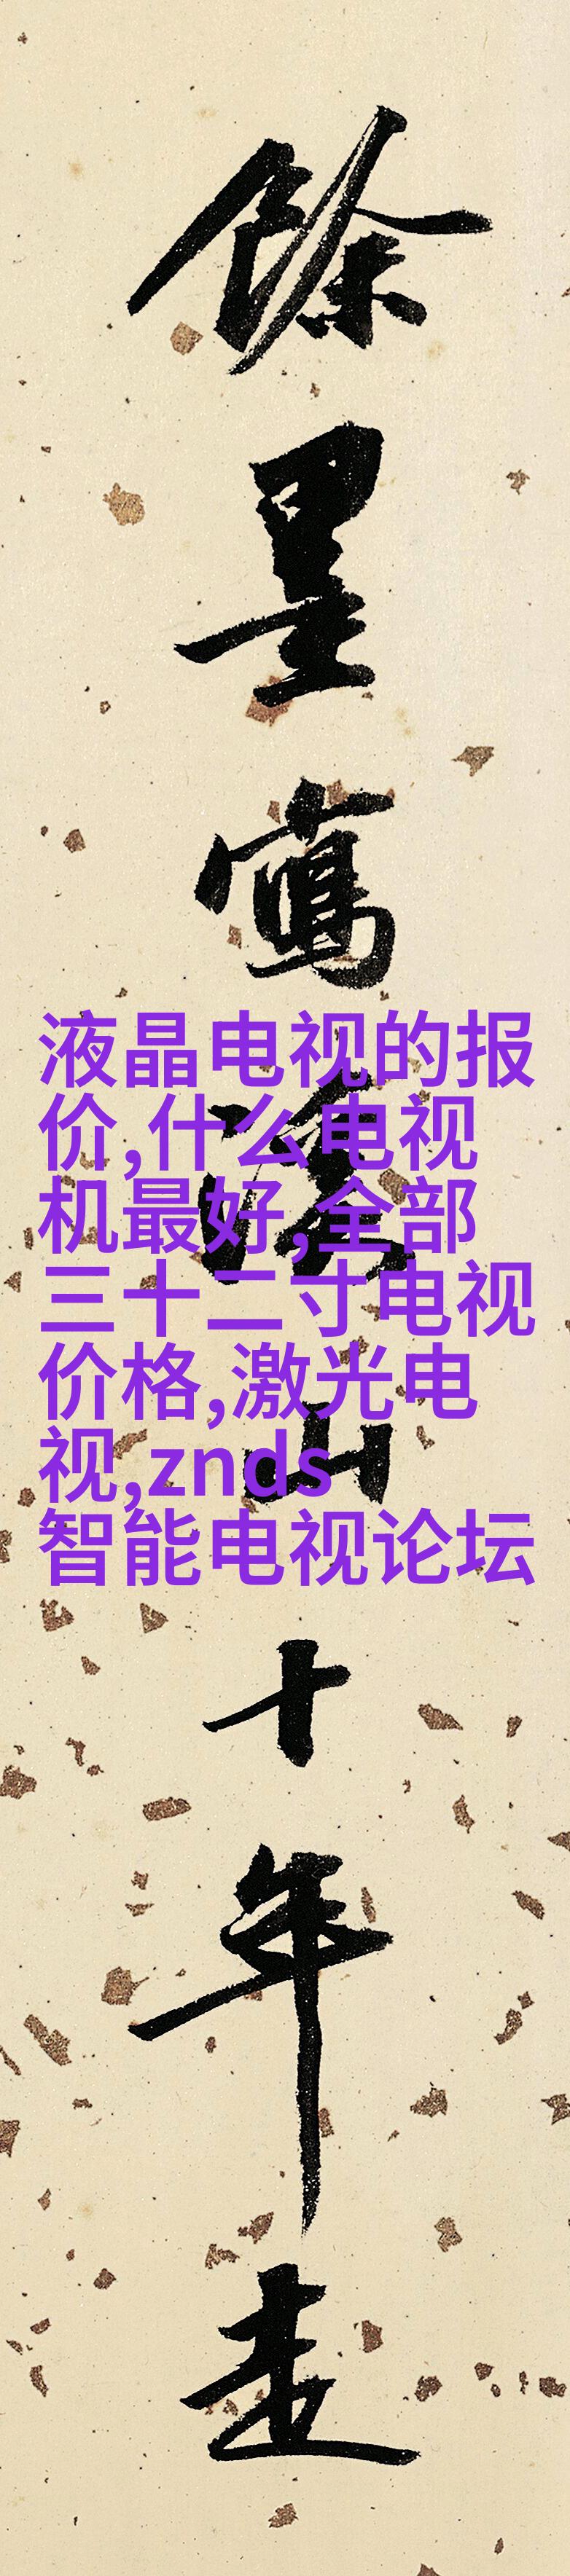 餘墨寫山十年走
液晶电视的报
价,什么电视
机最好,全部
三十二寸电视
价格,激光电
视,znds
智能电视论坛